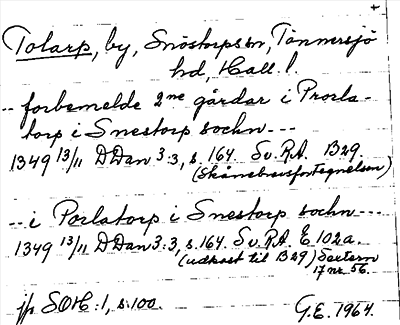 +
Tolarp, by, Snöstorps sn, Tönnersjö
hd, Hall. l.
-- forbemelde 2ne gårdar i Prorla-
torp i Snestorp sochn ---
1349 13/11 DDan 3:3, s. 164. Sv. R.A. B29
(Skånebrevsfortegnelsen)
-- i Porlatorp i Snestorp sochn ---
1349 13/11 DDan 3:3, s. 164. Sv. R.A. E 102a.
(udkast til B29)
17 nr. 56.
jfr SOH:1, s. 100.
G.E. 1964.